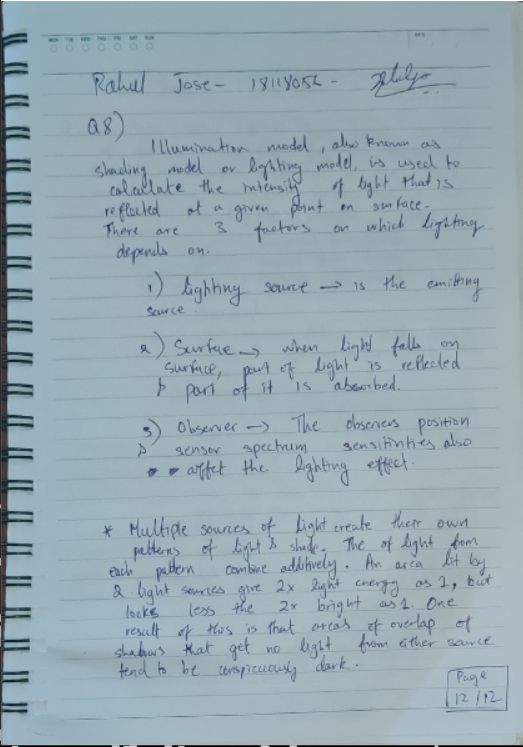 MON TUE WED THU FRI SAT SUN
DATE
Rahul Jose - 18118056 -
Q8)
Illumination model, also known as
shading model or lighting model, is used to
calculate the intensity of light that is
reflected at a given point on surface.
There are 3 factors on which lighting
depends on.
1) lighting source → is the emitting
source.
2) Surface → when light falls on
surface, part of light is reflected
& part of it is absorbed.
3) Observer → The observers position
& sensor spectrum sensitivities also
affet the lighting effect.
* Multiple sources of light create their own
patterns of light & shade. The of light from
each pattern combine additively. An area lit by
2 light sources give 2x light energy as 1, but
looks less the 2x bright as 1. One
result of this is that areas of overlap of
shadows that get no light from either source
tend to be conspicuously dark.
Page
12/12